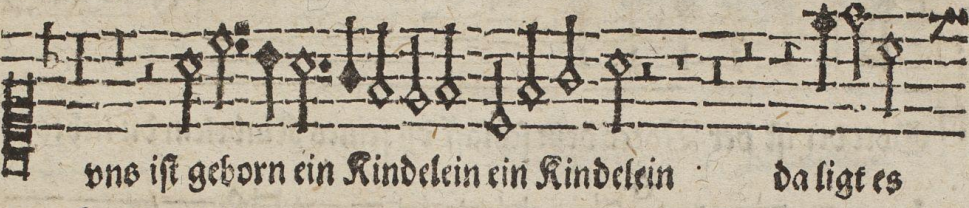 vns iſt geborn ein Kindelein ein Kindelein da ligt es